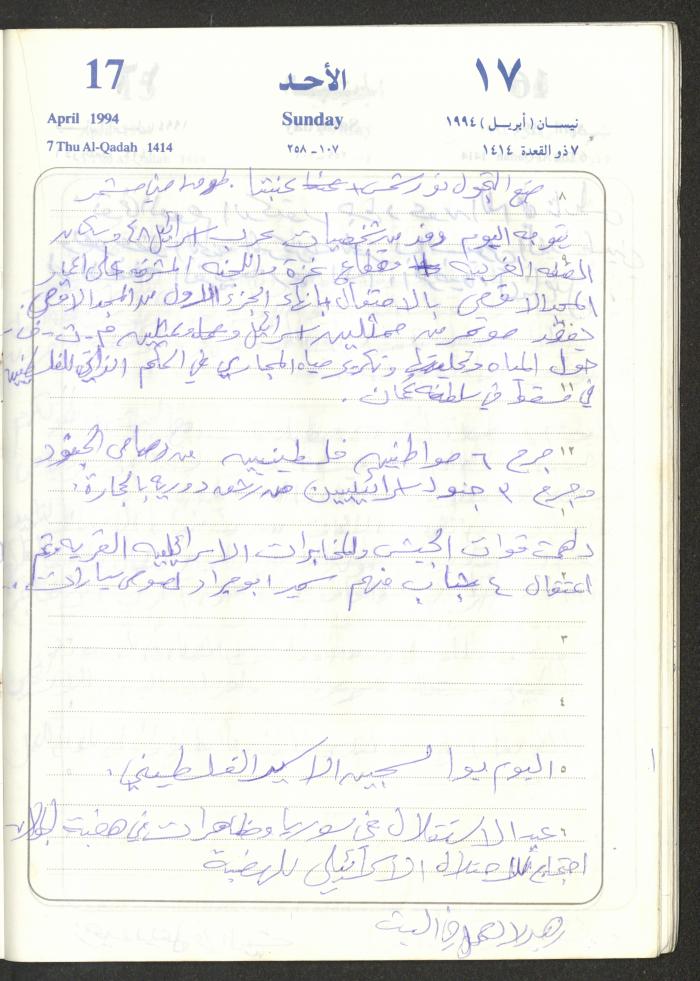 17 الأحد ١٧
April 1994 Sunday نيسان (أبريل) ١٩٩٤
7 Thu Al-Qadah 1414 ١٠٧-٢٥٨ ٧ ذو القعدة ١٤١٤
٨ منع التجول نور شمس عنبتا
يتوجه اليوم وفد من شخصيات عرب اسرائيل ٤٨ وسكان
٩ الضفه الغربيه وقطاع غزة واللجنه المشرفه على اعمار
المسجد الاقصى بالاحتفال بانهاء الجزء الاول من المسجد الاقصى.
يعقد مؤتمر من ممثلين اسرائيل وممثلين م.ت.ف.
حول المياه وتحليتها وتكرير مياه المجاري في الحكم الذاتي للفلسطينين
١١ في مسقط في سلطنة عُمان.
١٢ جرح ٦ مواطنين فلسطينيين من رصاص الجنود
وجرح ٣ جنود اسرائيليين من رشق دورية بالحجارة.
داهمت قوات الجيش والمخابرات الاسرائيليه القريه وتم
٢ اعتقال ٤ شباب منهم سمير ابو مراد لصوص سيارات..
٣
٤
٥ اليوم يوم السجين الاسير الفلسطيني.
٦ عيد الاستقلال في سوريا ومظاهرات في هضبة الجولان
احتجاج للاحتلال الاسرائيلي للهضبة
العمل في البيت